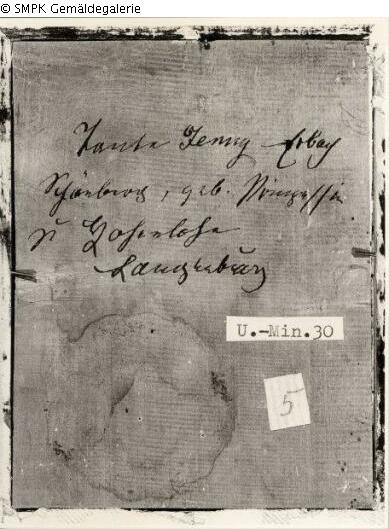 © SMPK Gemäldegalerie
Tante Jenny Erbach
Schönberg, geb. Prinzessin
zu Hohenlohe
Langenburg
U.-Min.30
5